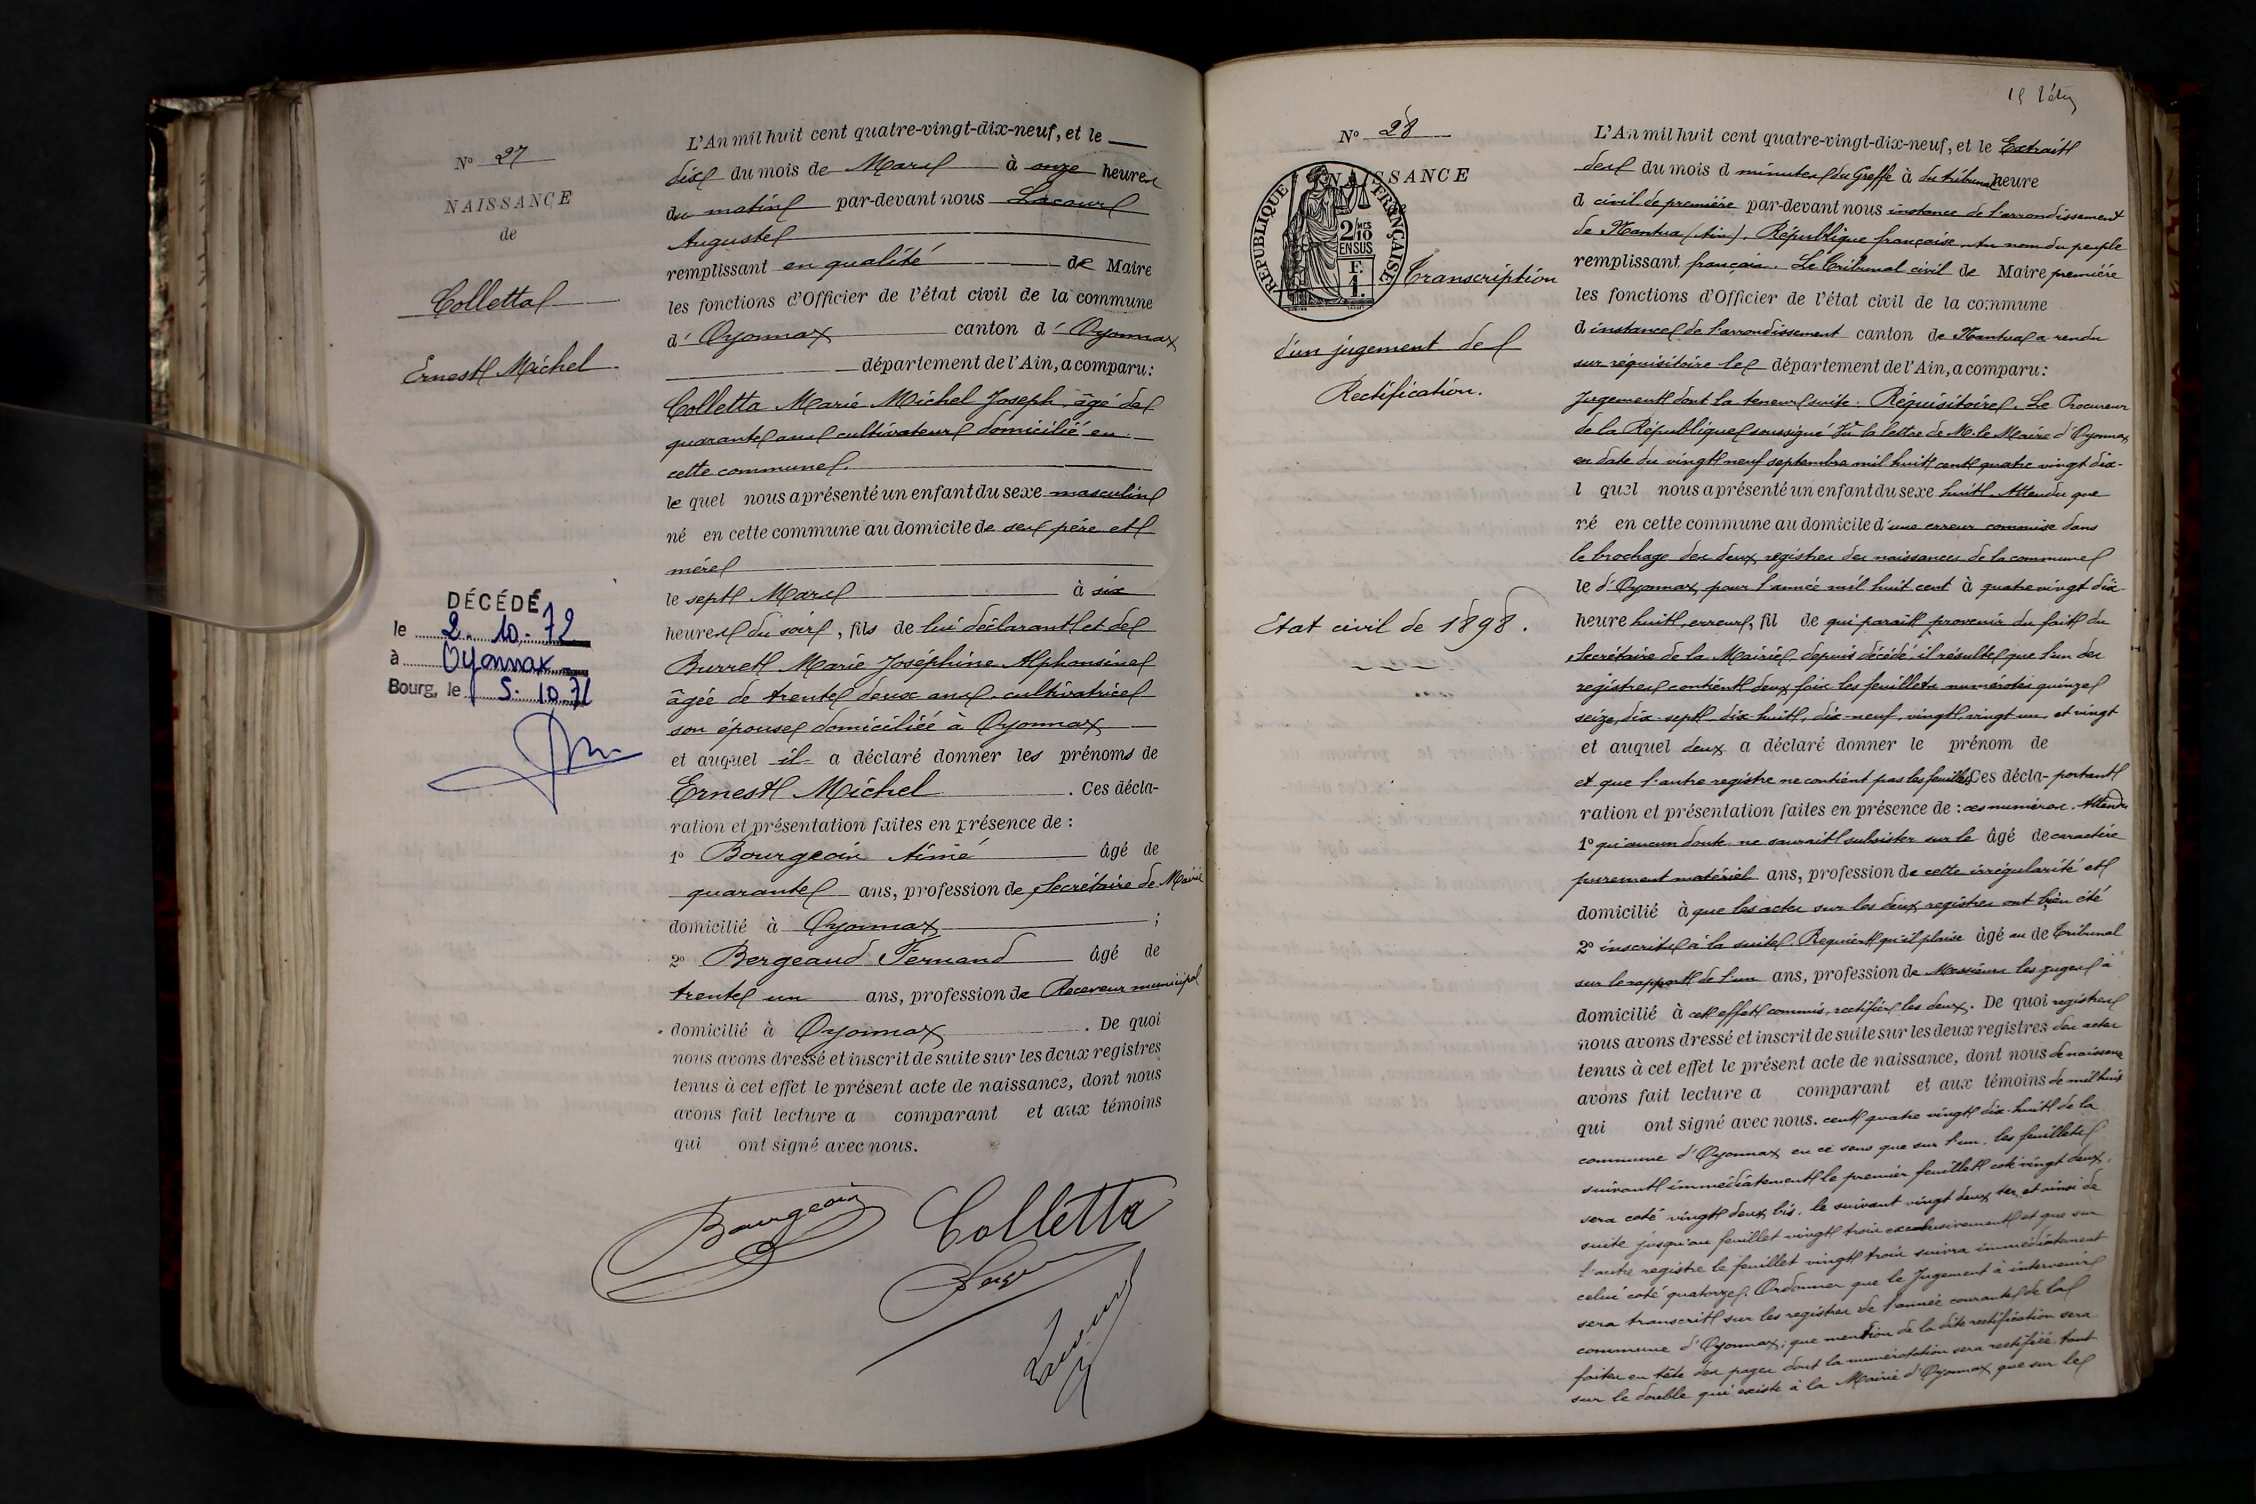 N° 27
NAISSANCE
de
Colletta
Ernest Michel
DÉCÉDÉ
le 2. 10. 72
à Oyonnax
Bourg, le 5. 10. 72
L'An mil huit cent quatre-vingt-dix-neuf, et le
dix du mois de Mars à onze heures
du matin par-devant nous Lacour
Auguste
remplissant en qualité de Maire
les fonctions d'Officier de l'état civil de la commune
d' Oyonnax canton d' Oyonnax
département de l'Ain, a comparu :
Colletta Marie Michel Joseph, âgé de
quarante ans cultivateur domicilié en
cette commune.
le quel nous a présenté un enfant du sexe masculin
né en cette commune au domicile de ses père et
mère
le sept Mars à six
heures du soir, fils de lui déclarant et de
Burret Marie Joséphine Alphonsine
âgée de trente deux ans, cultivatrice
son épouse domiciliée à Oyonnax
et auquel il a déclaré donner les prénoms de
Ernest Michel . Ces décla-
ration et présentation faites en présence de :
1° Bourgeois Aimé âgé de
quarante ans, profession de Secrétaire de Mairie
domicilié à Oyonnax ;
2° Bergeaud Fernand âgé de
trente un ans, profession de Receveur municipal
domicilié à Oyonnax . De quoi
nous avons dressé et inscrit de suite sur les deux registres
tenus à cet effet le présent acte de naissance, dont nous
avons fait lecture a comparant et aux témoins
qui ont signé avec nous.
Bourgeois Colletta
N° 28
NAISSANCE
RÉPUBLIQUE FRANÇAISE
2/10
EN SUS
Transcription
d'un jugement de
Rectification.
Etat civil de 1898.
L'An mil huit cent quatre-vingt-dix-neuf, et le Extrait
des du mois d minutes du Greffe à du tribunal heure
d civil de première par-devant nous instance de l'arrondissement
de Nantua (Ain). République française. Au nom du peuple
remplissant français. Le Tribunal civil de Maire première
les fonctions d'Officier de l'état civil de la commune
d instance de l'arrondissement canton de Nantua a rendu
sur réquisitoire le département de l'Ain, a comparu :
jugement dont la teneur suit. Réquisitoire. Le Procureur
de la République soussigné Vu la lettre de M. le Maire d'Oyonnax
en date du vingt neuf septembre mil huit cent quatre vingt dix-
l quel nous a présenté un enfant du sexe huit. Attendu que
né en cette commune au domicile d'une erreur commise dans
le brochage des deux registres des naissances de la commune
le d'Oyonnax pour l'année mil huit cent à quatre vingt dix-
heure huit, erreur, fil de qui paraît provenir du fait du
Secrétaire de la Mairie, depuis décédé, il résulte que l'un des
registres contient deux fois les feuillets numérotés quinze
seize, dix-sept, dix-huit, dix-neuf, vingt, vingt un, et vingt
et auquel deux a déclaré donner le prénom de
et que l'autre registre ne contient pas les feuillets Ces décla- portant
ration et présentation faites en présence de : ces numéros. Attendu
1° qu'aucun doute ne saurait subsister sur le âgé de caractère
purement matériel ans, profession de cette irrégularité et
domicilié à que les actes sur les deux registres ont bien été
2° inscrits à la suite. Requiert qu'il plaise âgé au de Tribunal
sur le rapport de l'un ans, profession de Messieurs les juges à
domicilié à cet effet commis, rectifier les deux. De quoi registres
nous avons dressé et inscrit de suite sur les deux registres des actes
tenus à cet effet le présent acte de naissance, dont nous de naissance
avons fait lecture a comparant et aux témoins de mil huit
qui ont signé avec nous. cent quatre vingt dix-huit de la
commune d'Oyonnax en ce sens que sur l'un, les feuillets
suivant immédiatement le premier feuillet coté vingt deux,
sera coté vingt deux bis, le suivant vingt deux ter, et ainsi de
suite jusqu'au feuillet vingt trois exclusivement et que sur
l'autre registre le feuillet vingt trois suivra immédiatement
celui coté quatorze. Ordonner que le Jugement à intervenir
sera transcrit sur les registres de l'année courante de la
commune d'Oyonnax ; que mention de la dite rectification sera
faite en tête des pages dont la numérotation sera rectifiée tant
sur le double qui existe à la Mairie d'Oyonnax que sur le